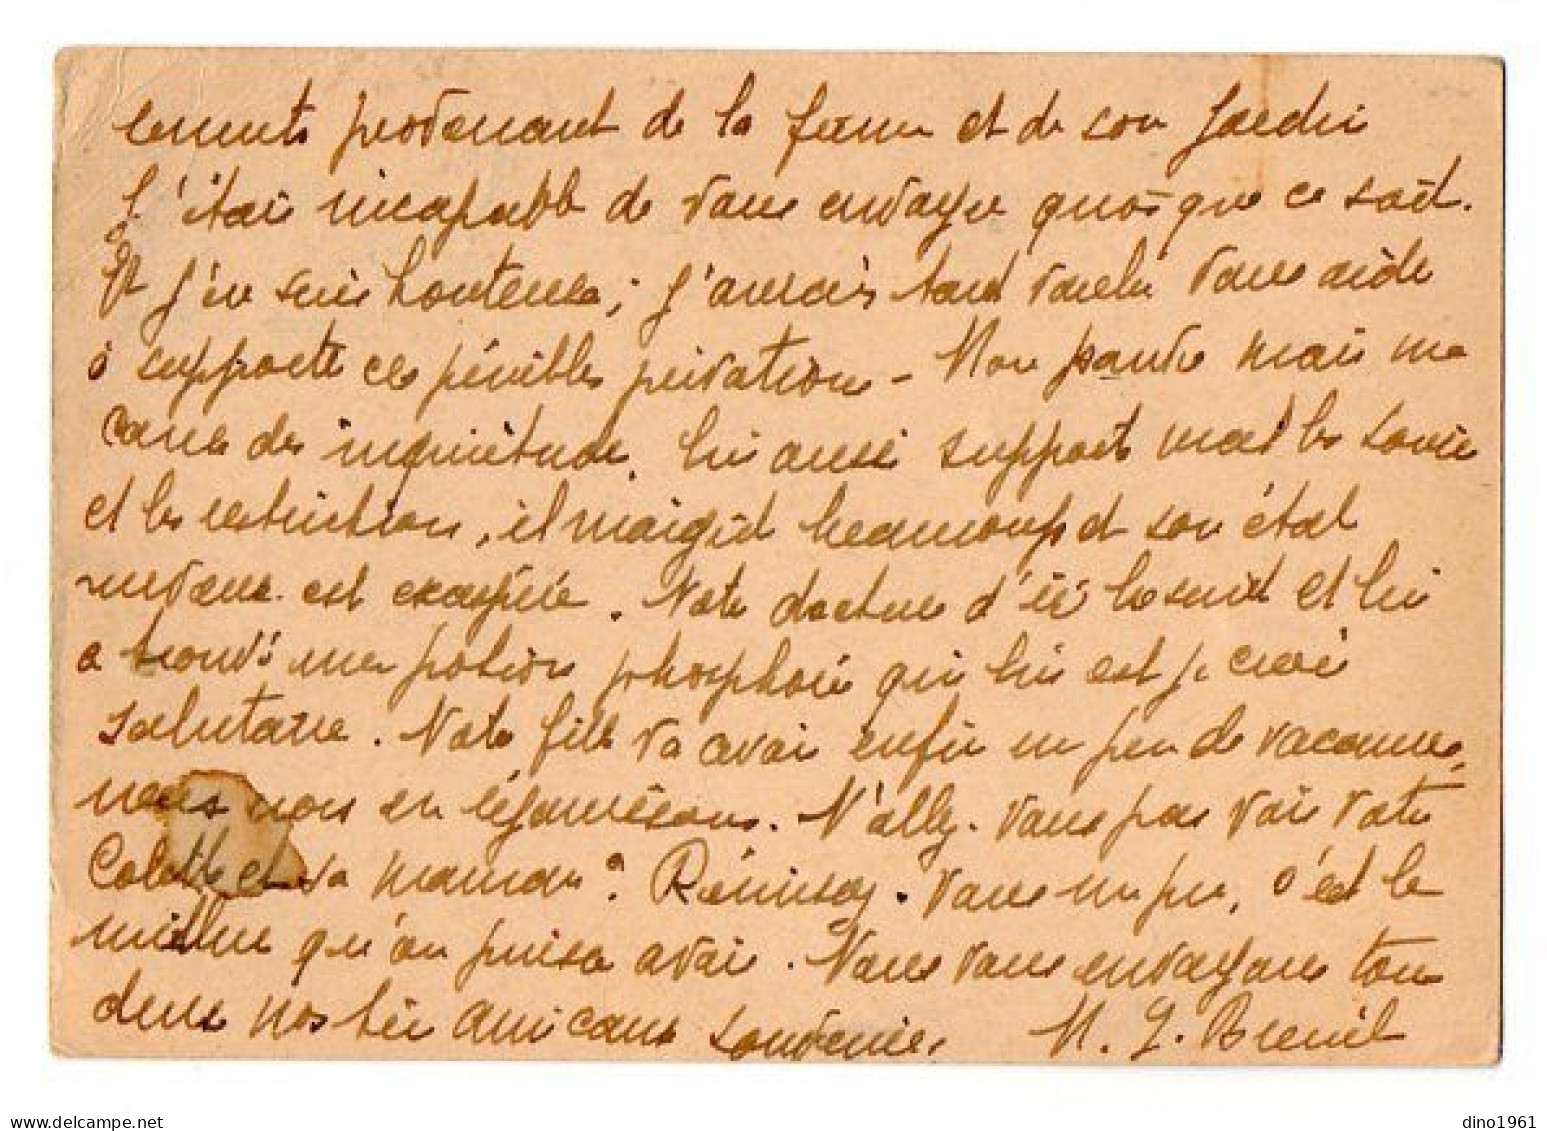 lements provenant de la ferme et de son jardin
J'étais incapable de vous envoyer quoi-que ce soit.
Et j'en suis honteuse; j'aurais tant voulu vous aider
à supporter ces pénibles privations - Mon pauvre mari me
cause des inquiétudes. Lui aussi supporte mal les soucis
et les restrictions, il maigrit beaucoup et son état
nerveux est exagéré. Notre docteur d'ici le suit et lui
a trouvé une potion phosphorée qui lui est je crois
salutaire. Notre fille va avoir enfin un peu de vacances,
nous nous en réjouissons. N'allez-vous pas voir votre
Colette et sa maman? Réunissez-vous un peu, c'est le
meilleur qu'on puisse avoir. Nous vous envoyons tous
deux nos bien amicaux souvenirs. M. L. Breuil
dino1961